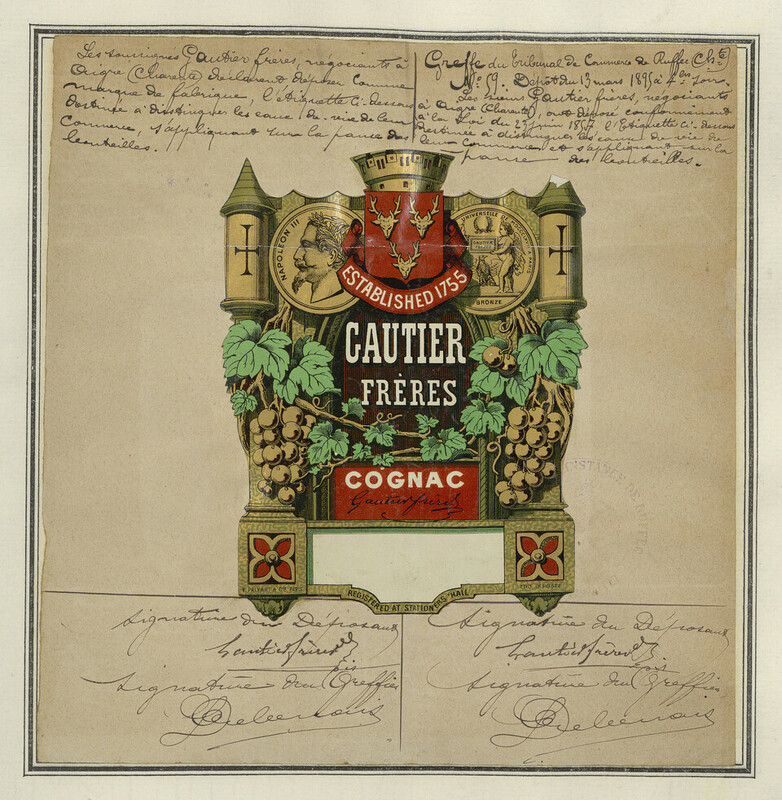 Les soussignés Gautier frères, négociants à
Aigre (Charente) déclarent déposer comme
marque de fabrique, l'étiquette ci-dessous
destinée à distinguer les eaux-de-vie de leur
Commerce, s'appliquant sur la panse des
bouteilles.
Greffe du Tribunal de Commerce de Ruffec (Chte)
No 59. Dépôt du 13 mars 1895 à 4 hes soir
Les sieurs Gautier frères, négociants
à Aigre (Charente), ont déposé conformément
à la Loi du 23 juin 1857, l'Etiquette ci-dessous
destinée à distinguer les eaux de vie de
leur Commerce et s'appliquant sur la
panse des bouteilles.
NAPOLEON III
UNIVERSELLE DE
GAUTIER
FRÈRES
BRONZE
ESTABLISHED 1755
GAUTIER
FRÈRES
COGNAC
Gautier frères
REGISTERED AT STATIONERS' HALL
Signature du Déposant
Gautier frères
Signature du Greffier
Signature du Déposant
Gautier frères
Signature du Greffier